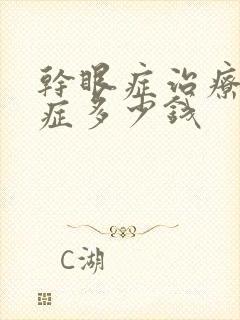 幹眼症治療
症多少錢
C湖